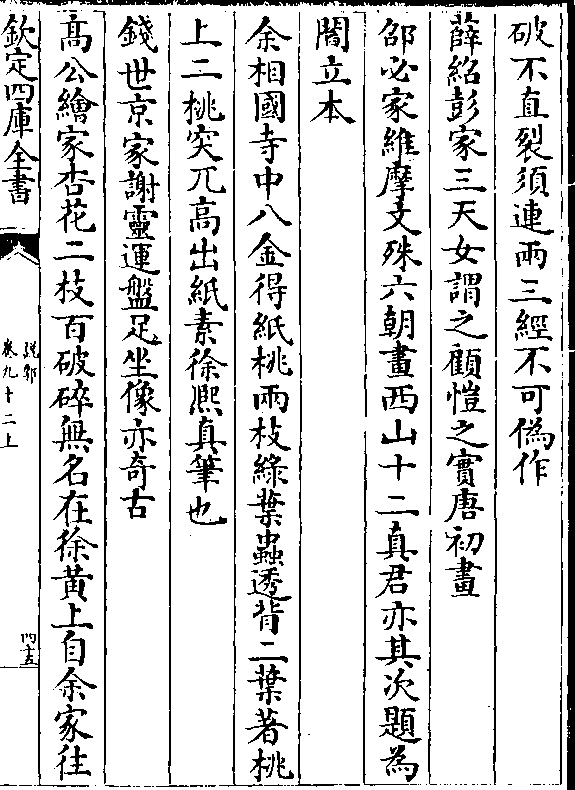 破不直裂須連兩三經不可偽作
薛紹彭家三天女謂之顧愷之實唐初畫
邵必家維摩文殊六朝畫西山十二真君亦其次題為
閻立本
余相國寺中八金得紙桃兩枝綠葉蟲透背二葉著桃
上二桃突兀高出紙素徐熈真筆也
錢世京家謝靈運盤足坐像亦奇古
高公繪家杏花二枝百破碎無名在徐黄上自余家往
欽定四庫全書
說郛
卷九十二上
四十五